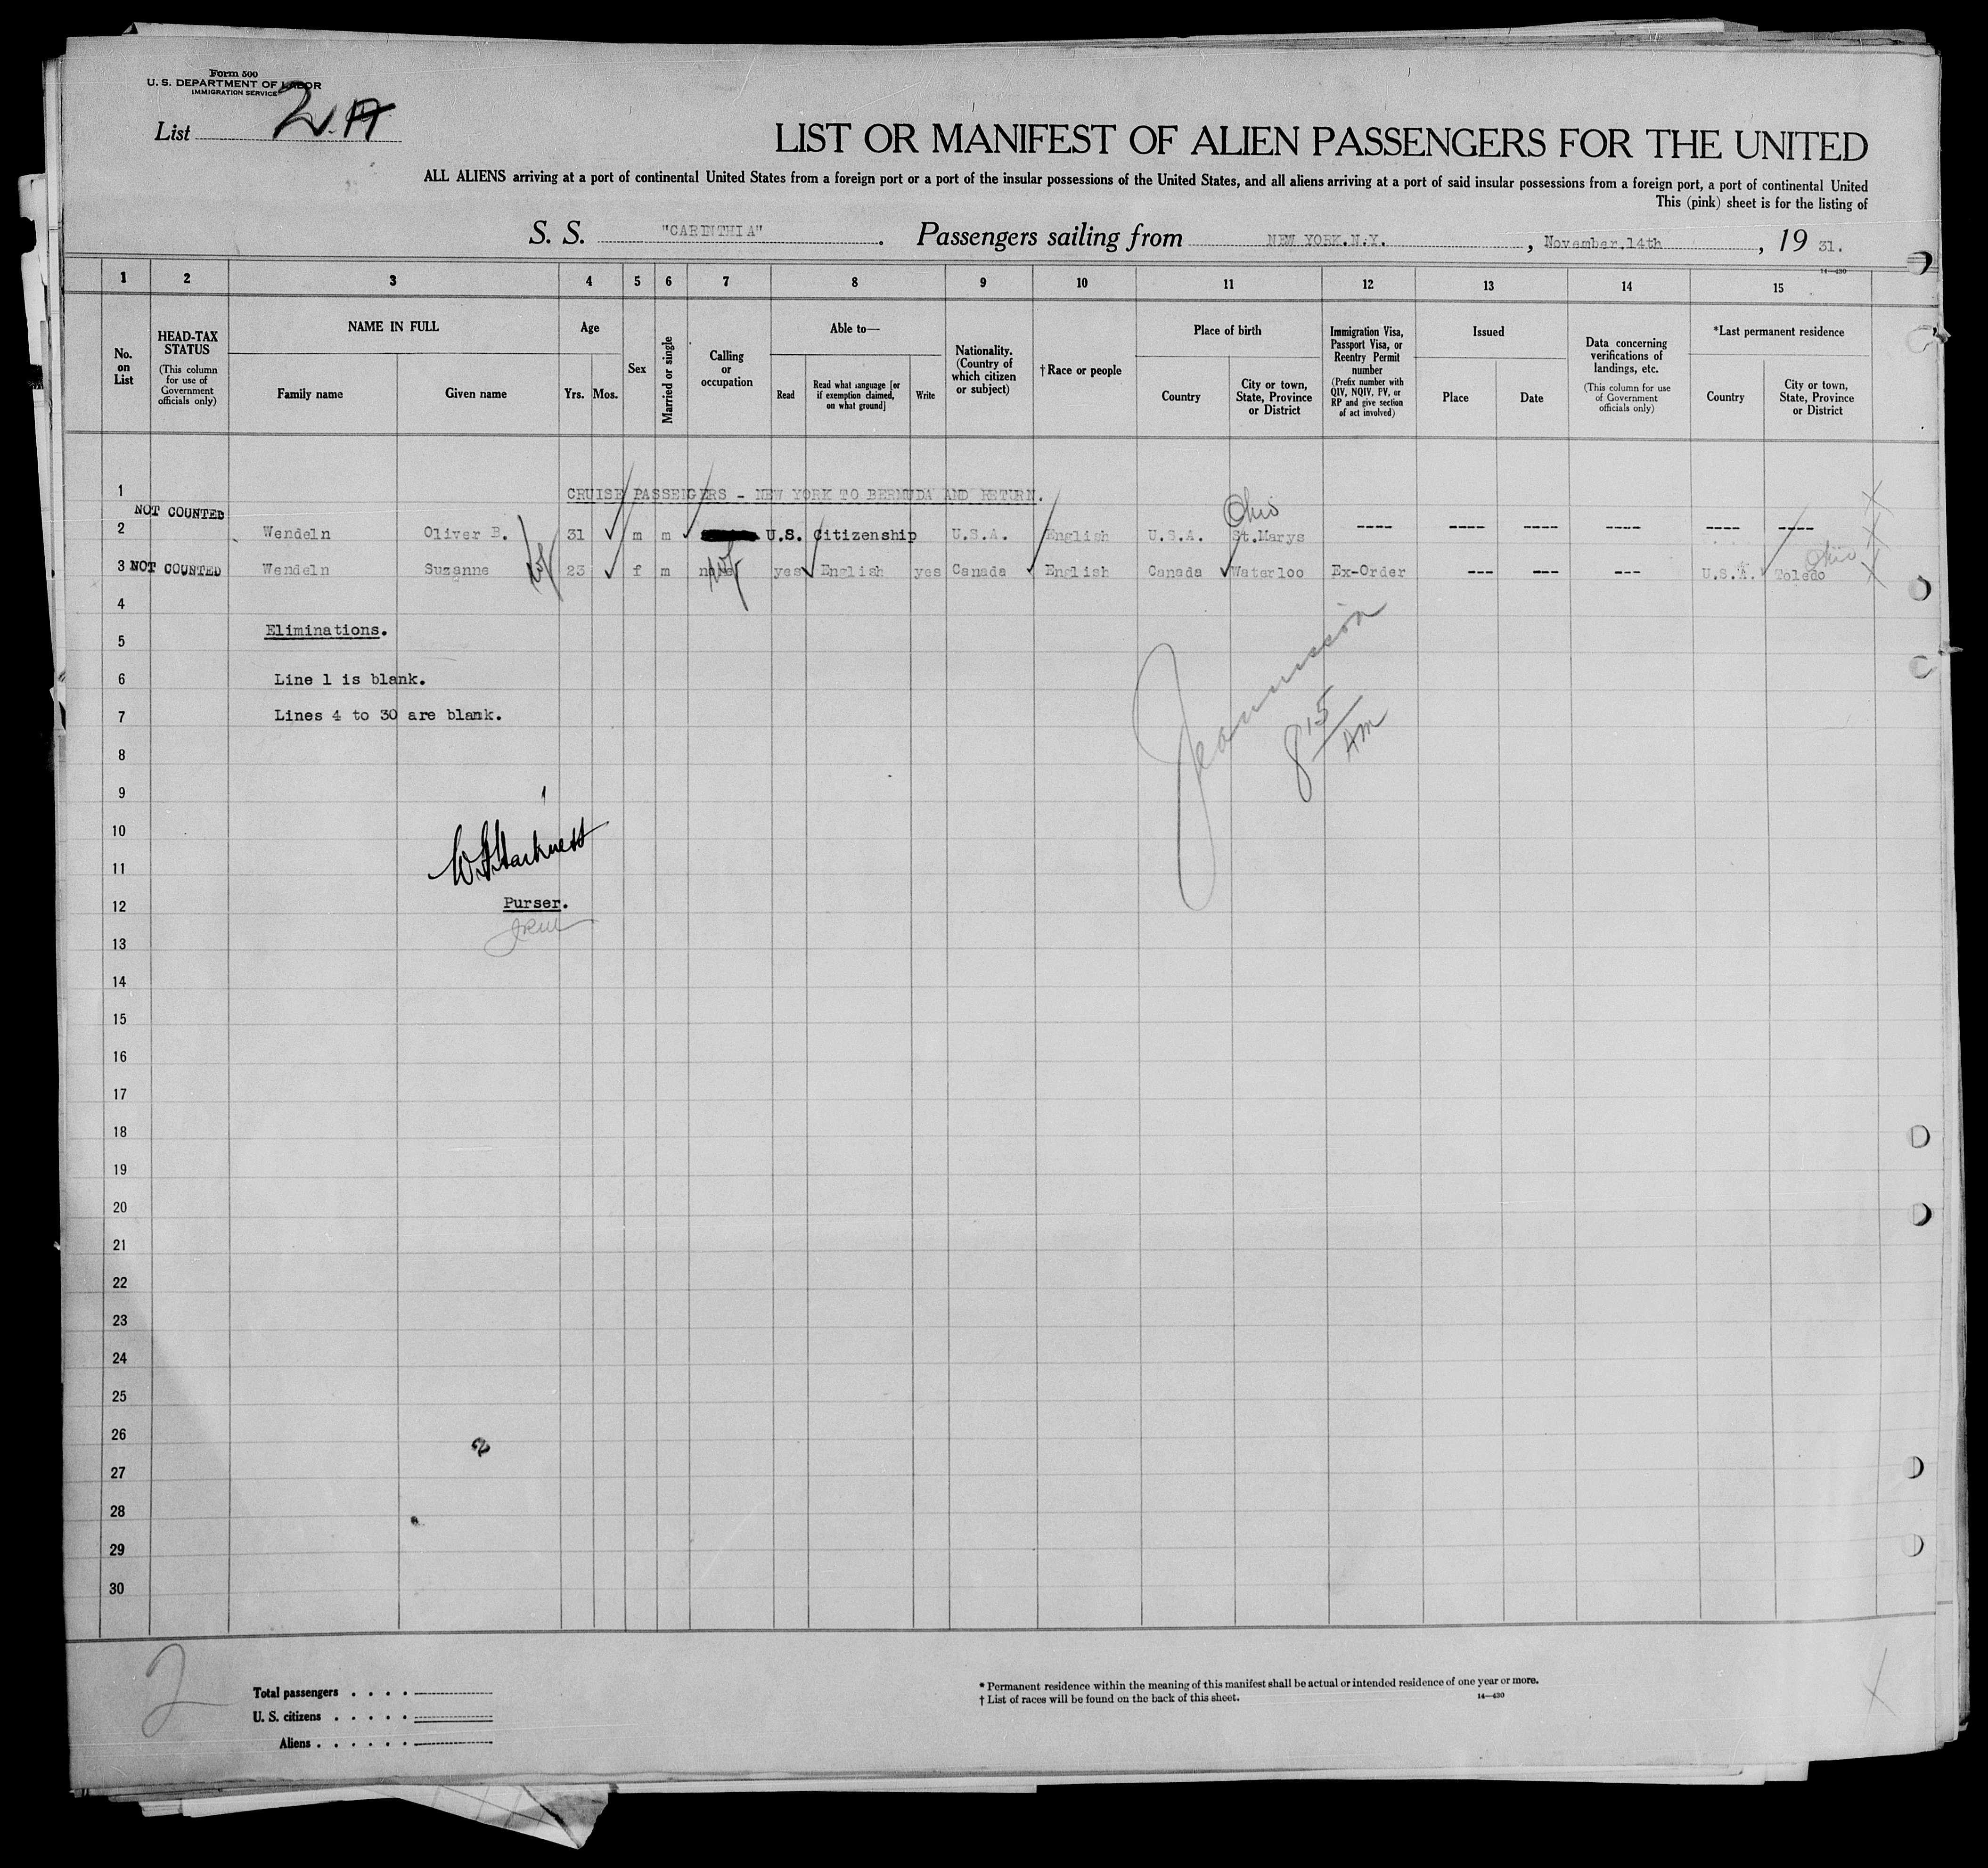 Form 500
U. S. DEPARTMENT OF LABOR
IMMIGRATION SERVICE
List 2.A
LIST OR MANIFEST OF ALIEN PASSENGERS FOR THE UNITED
ALL ALIENS arriving at a port of continental United States from a foreign port or a port of the insular possessions of the United States, and all aliens arriving at a port of said insular possessions from a foreign port, a port of continental United
This (pink) sheet is for the listing of
S. S. "CARINTHIA". Passengers sailing from NEW YORK.N.Y., November.14th, 19 31.
14—430
1 2 3 4 5 6 7 8 9 10 11 12 13 14 15
No. on List
HEAD-TAX STATUS
(This column for use of Government officials only)
NAME IN FULL
Family name Given name
Age
Yrs. Mos.
Sex
Married or single
Calling or occupation
Able to—
Read
Read what language [or if exemption claimed, on what ground]
Write
Nationality. (Country of which citizen or subject)
† Race or people
Place of birth
Country
City or town, State, Province or District
Immigration Visa, Passport Visa, or Reentry Permit number
(Prefix number with QIV, NQIV, PV, or RP and give section of act involved)
Issued
Place Date
Data concerning verifications of landings, etc.
(This column for use of Government officials only)
*Last permanent residence
Country
City or town, State, Province or District
1 CRUISE PASSENGERS - NEW YORK TO BERMUDA AND RETURN.
NOT COUNTED
Ohio
2 Wendeln Oliver B. 31 m m U.S. Citizenship U.S.A. English U.S.A. St.Marys ---- ---- ---- ---- ---- ----
Ohio
3 NOT COUNTED Wendeln Suzanne 23 f m none yes English yes Canada English Canada Waterloo Ex-Order --- --- --- U.S.A. Toledo
4
5 Eliminations.
6 Line 1 is blank.
7 Lines 4 to 30 are blank.
8 8 15 AM
9
10
11 W Harkness
12 Purser.
13
14
15
16
17
18
19
20
21
22
23
24
25
26
27
28
29
30
2
Total passengers . . . .
U. S. citizens . . . . .
Aliens . . . . . .
* Permanent residence within the meaning of this manifest shall be actual or intended residence of one year or more.
† List of races will be found on the back of this sheet. 14—430